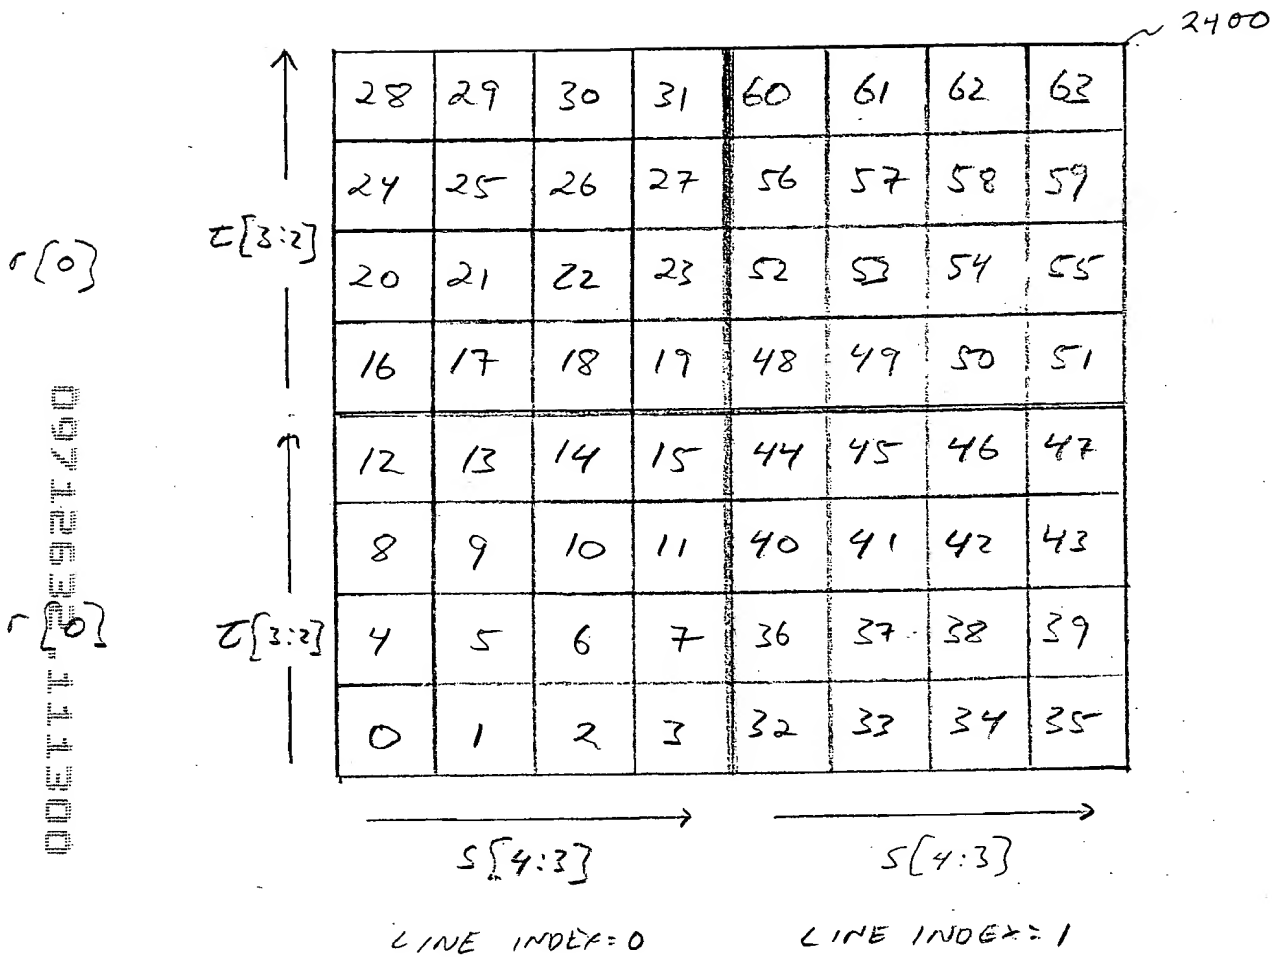 2400
28 29 30 31 60 61 62 63
24 25 26 27 56 57 58 59
τ[3:2]
r[0]
20 21 22 23 52 53 54 55
16 17 18 19 48 49 50 51
12 13 14 15 44 45 46 47
8 9 10 11 40 41 42 43
r[0]
τ[3:2]
4 5 6 7 36 37 38 39
0 1 2 3 32 33 34 35
S[4:3] S[4:3]
LINE INDEX=0 LINE INDEX=1
09712632.111300